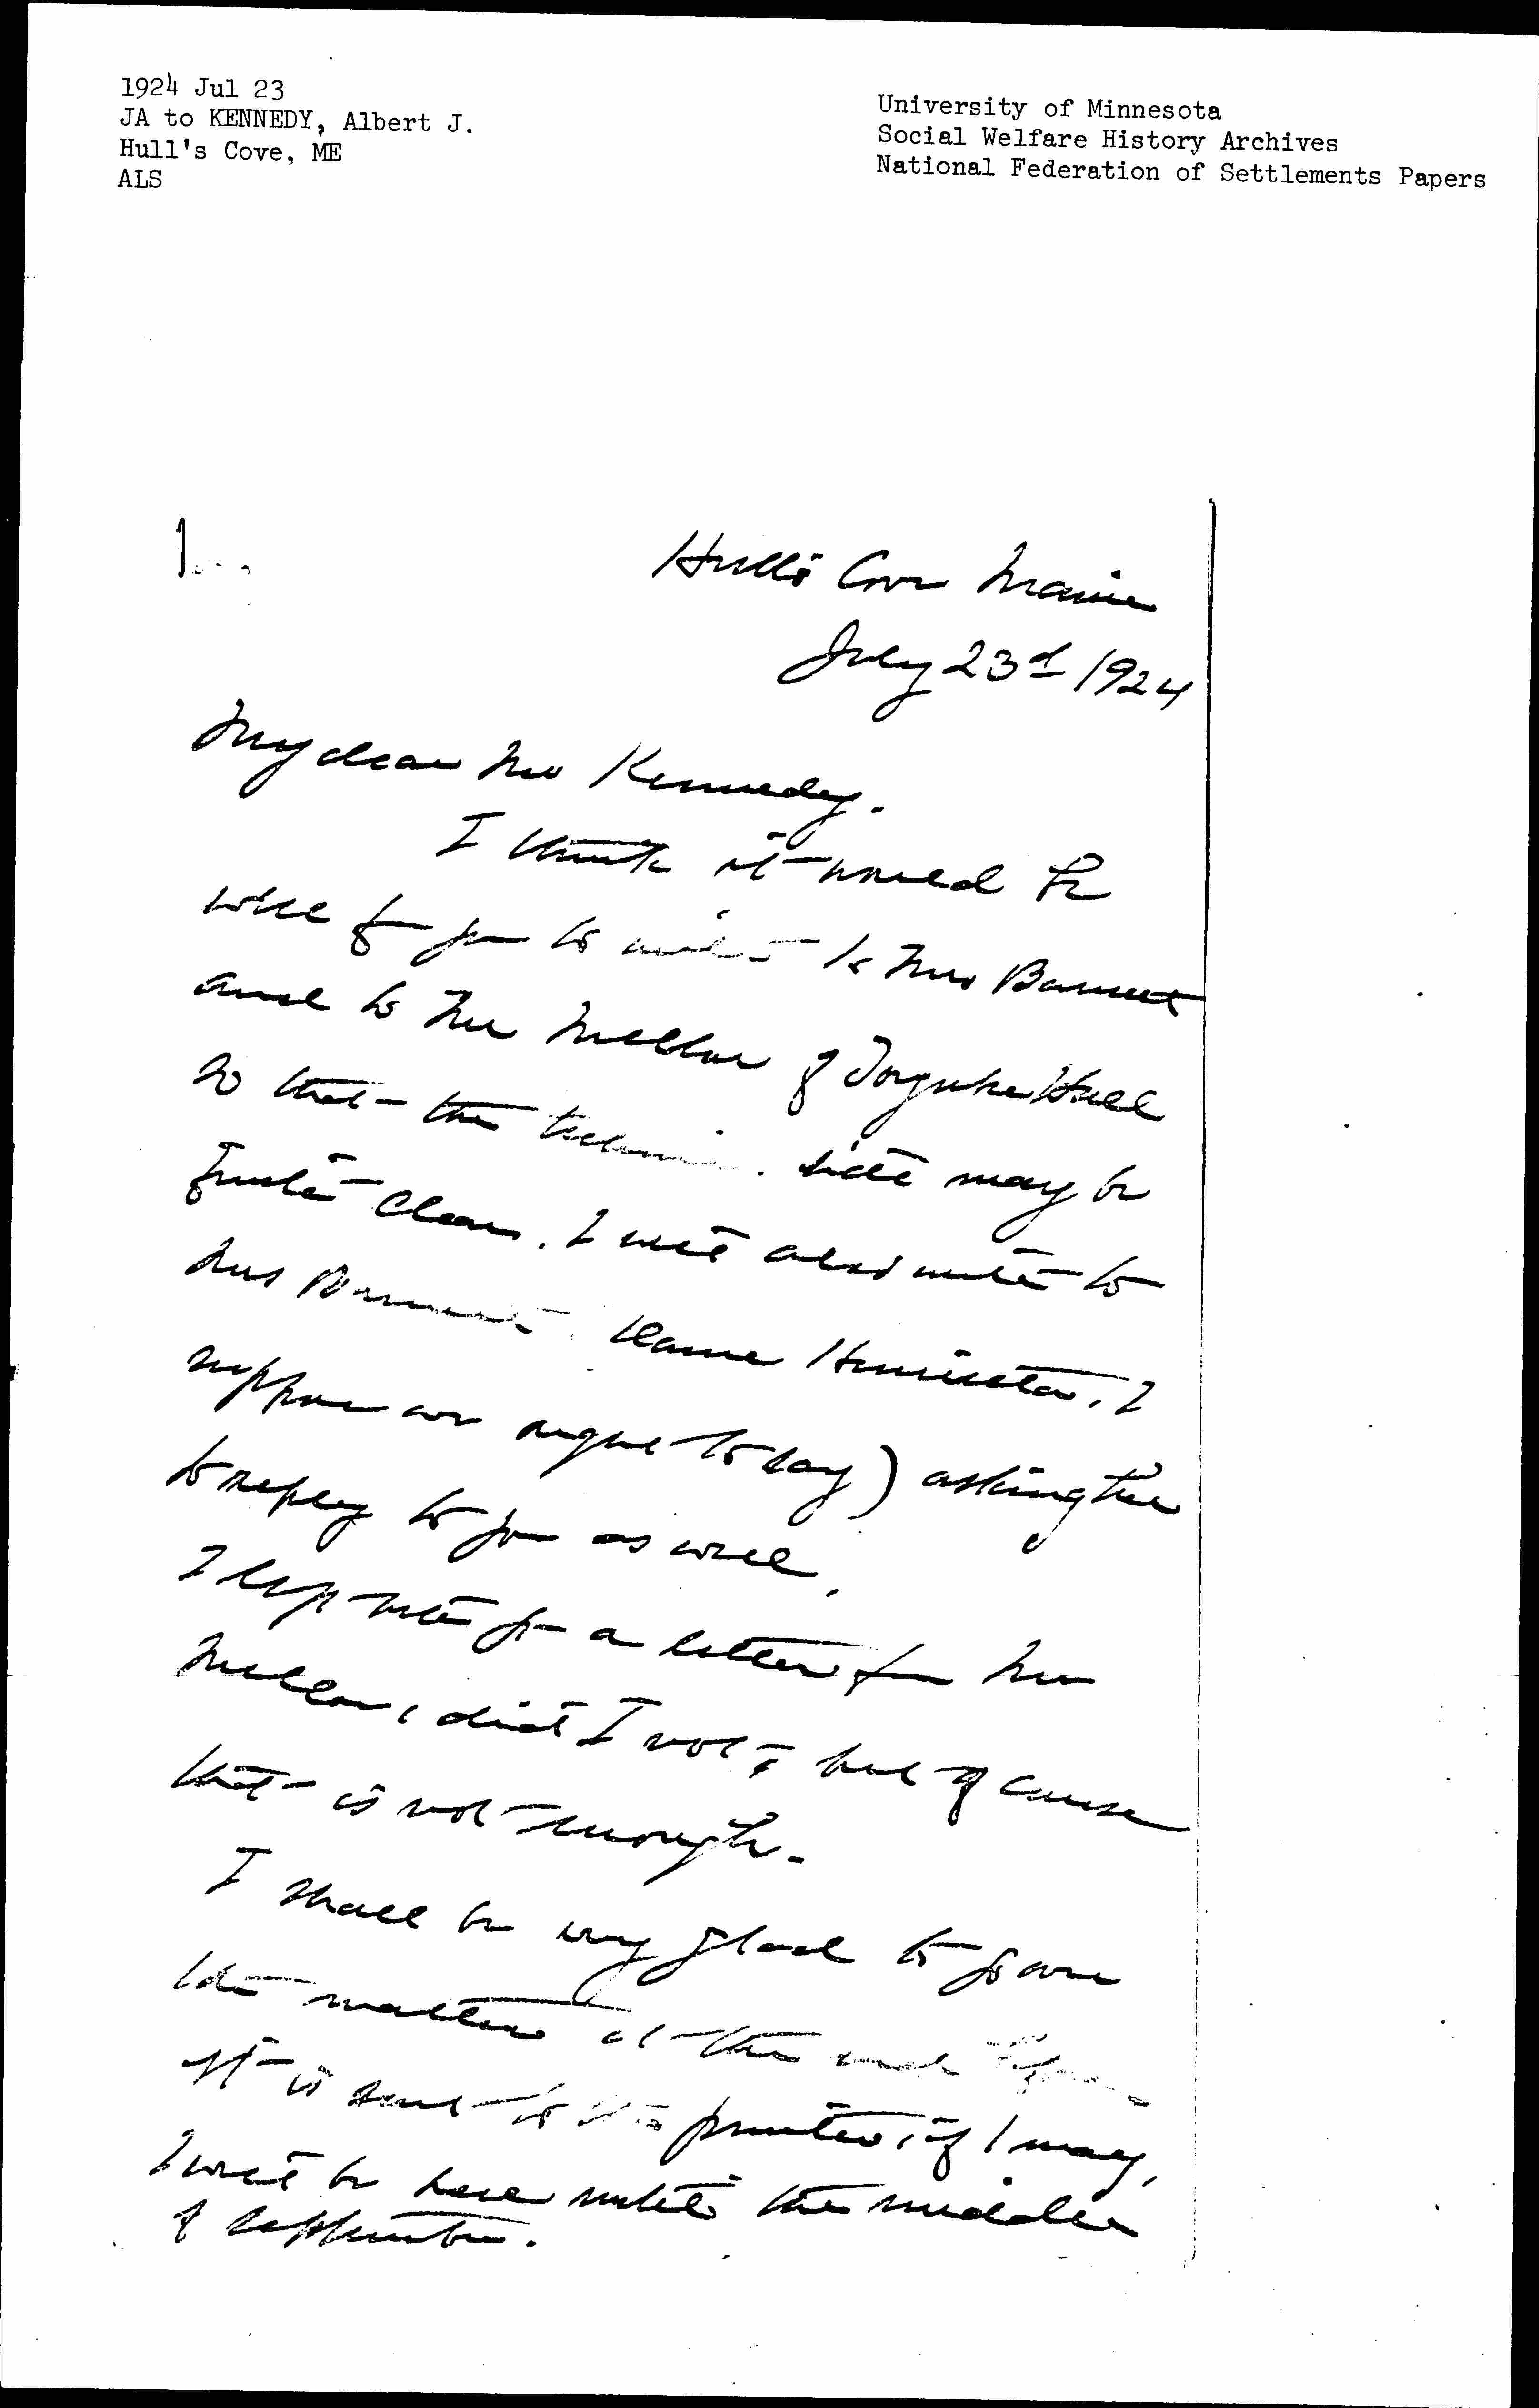 1924 Jul 23
JA to KENNEDY, Albert J.
Hull's Cove, ME
ALS
University of Minnesota
Social Welfare History Archives
National Federation of Settlements Papers
Hull's Cove Maine
July 23d 1924
My dear Mr Kennedy.
I think it would be
well for you to write to Mrs Barnett
and to Mr Mallon of Toynbee Hall
so that the technical side may be
quite clear. I will also write to
Mrs Barnett Dame Henrietta, I
suppose we ought to say) asking her
to reply to you as well.
I left with you a letter from Mr
Mallon, did I not, but of course
that is not enough.
I shall be very glad to go over
the matter at the end before
it is sent to the printer, if I may,
I will be here until the middle
of September.